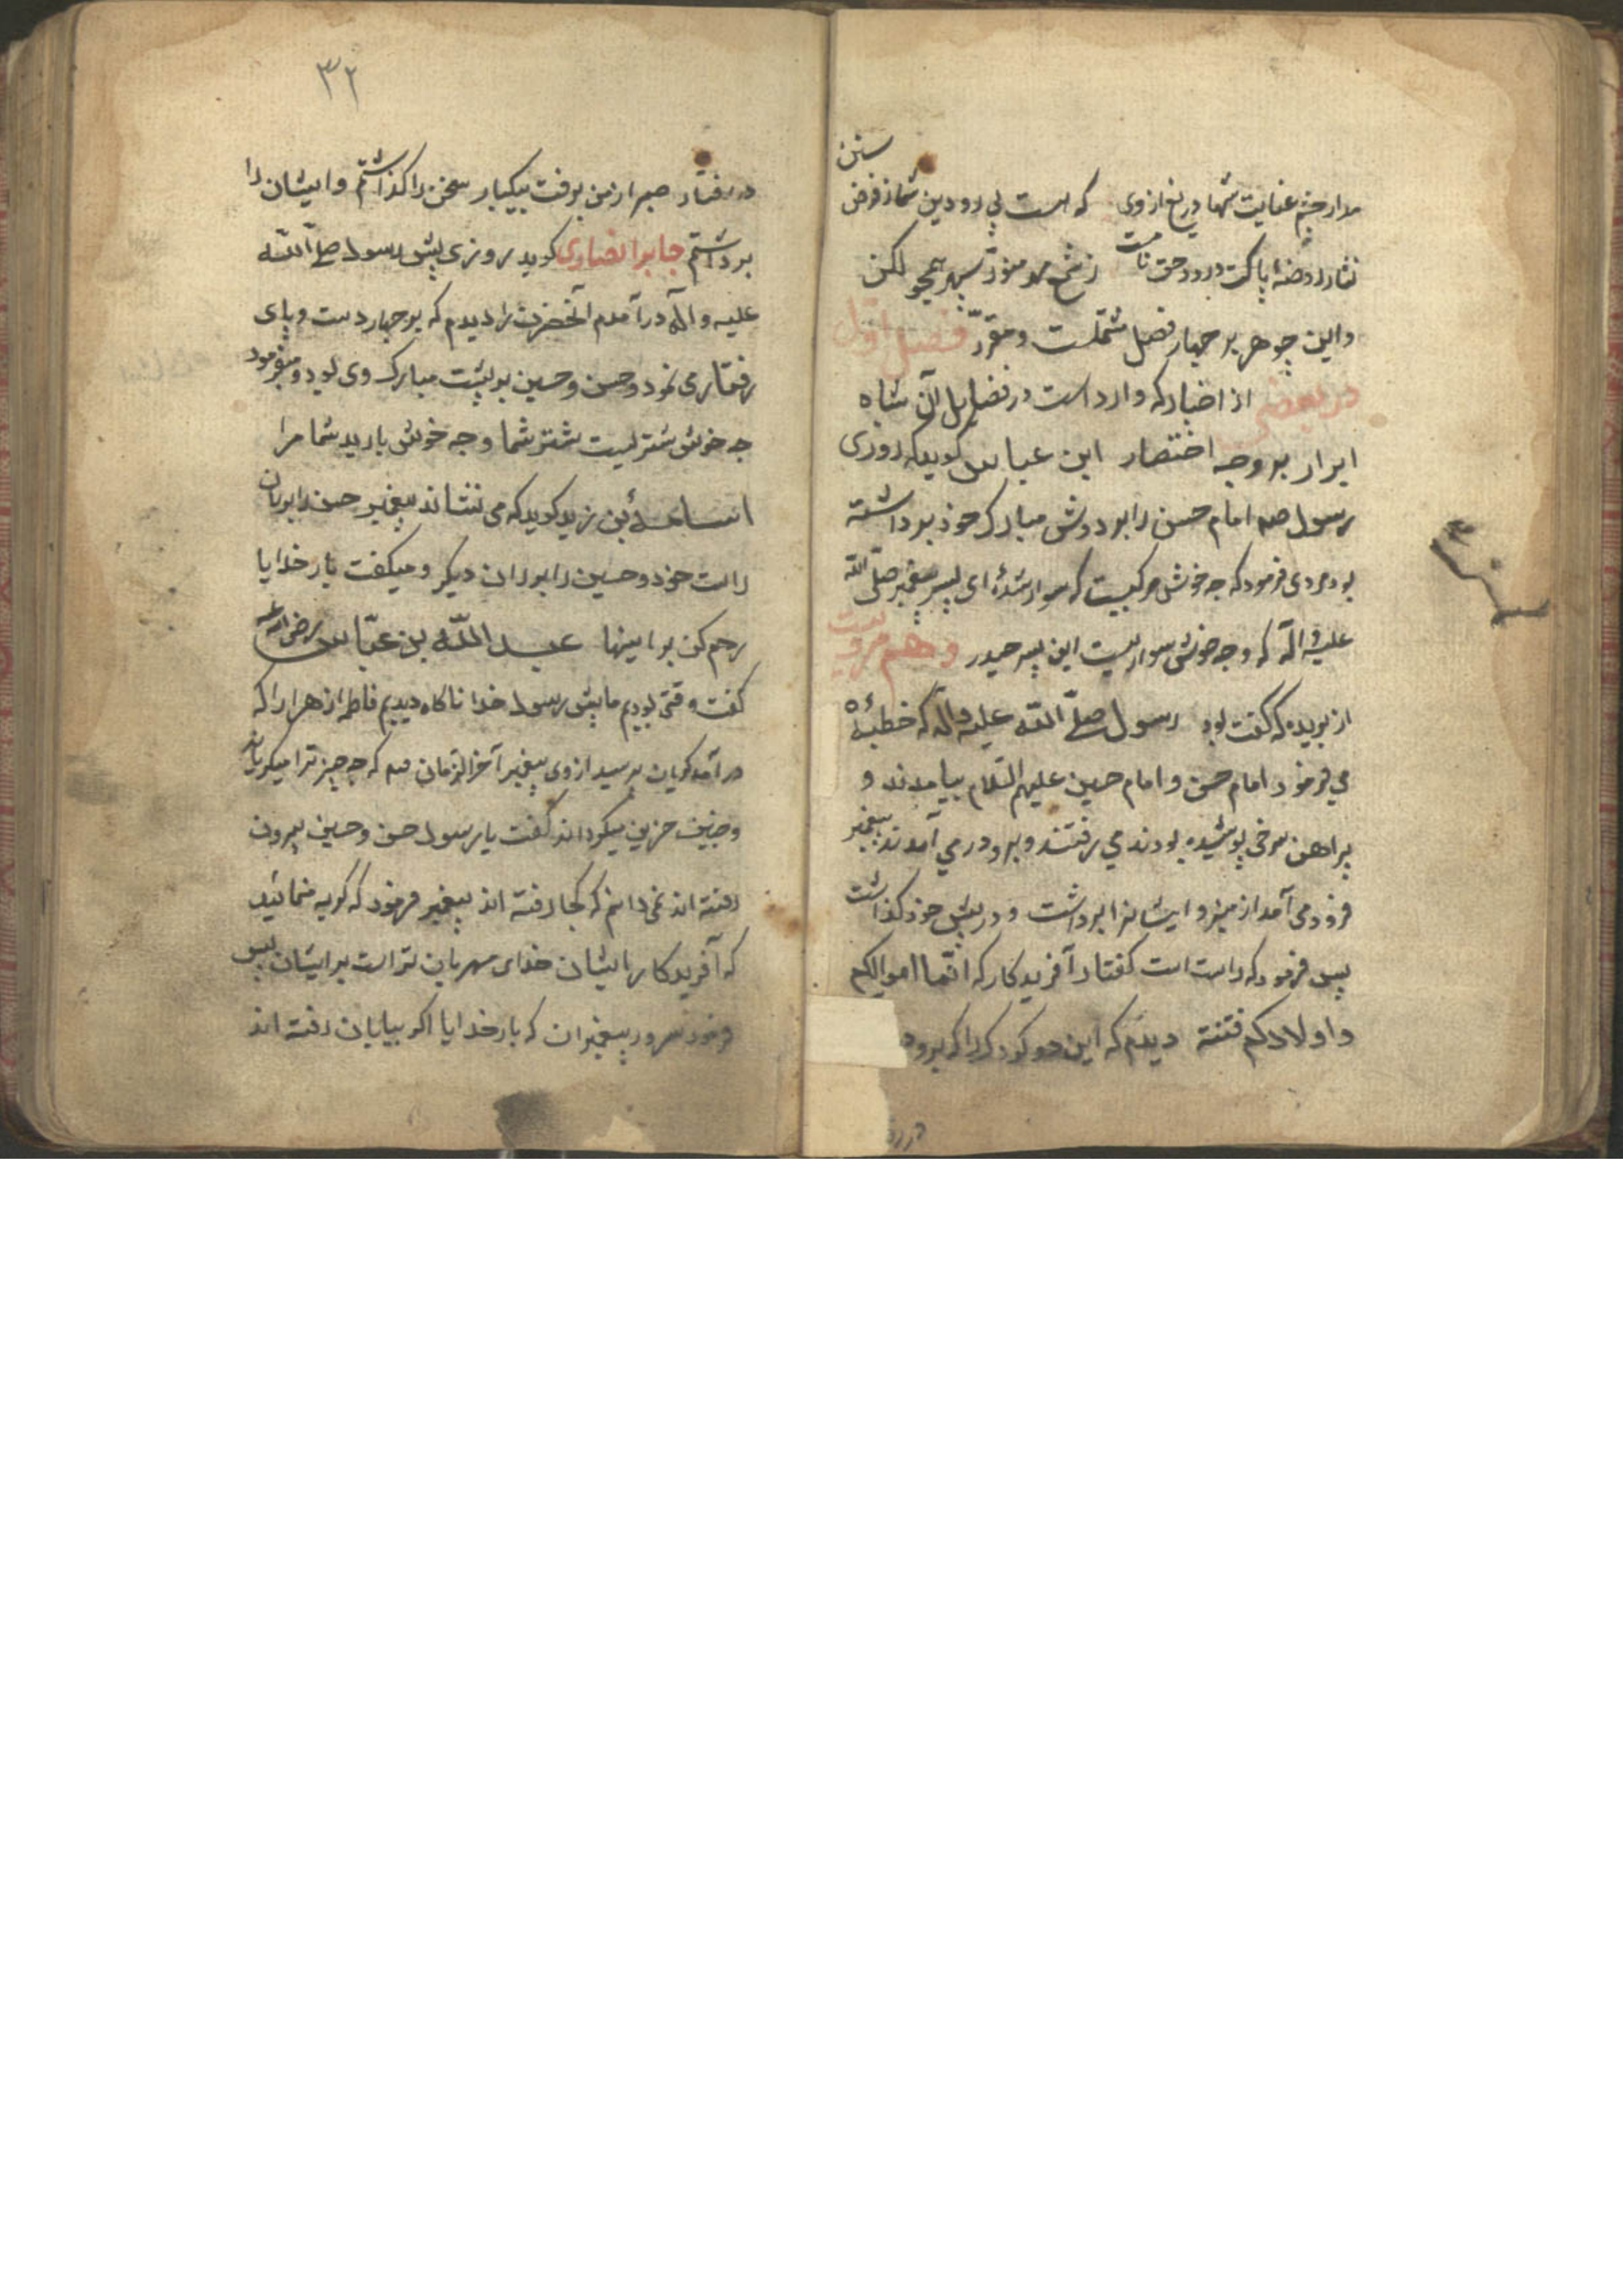 مدار چشم عنایت شها دریغ از وی که هست پی رو دین شما ز فرض
سنن
نثار روضهٔ پاکت درود حق تا هست ز شمع مهر منوّر سپهر همچو لکن
واین جوهر بر چهار فصل مشتملست و مقرّر فصل اوّل
در بعضی از اخبار که وارد است در فضایل آن شاه
ابرار بر وجه اختصار ابن عباس گوید که روزی
رسول صلم امام حسن را بر دوش مبارک خود برداشته
بود مردی فرمود که چه خوش مرکبیست که سوار شدهٔ ای پسر پیغمبر صلّی الله
علیه و آله که و چه خوش سواریست این پسر حیدر و هم مرویست
از بریده که گفت بود رسول صلّی اللّه علیه و آله که خطبهٔ
می فرمود امام حسن و امام حسین علیهم السّلام بیامدند و
پیراهن سرخی پوشیده بودند می رفتند و برو در می آمدند پیغمبر
فرود می آمد از منبر و ایشانرا برداشت و در پیش خود گذاشت
پس فرمود که راست است گفتار آفریدگار که انّما اموالکم
و اولادکم فتنة دیدم که این دو کودک را که برو
در رفتا
۳۲
در رفتار صبر از من برفت بیکبار سخن را گذاشتم و ایشان را
برداشتم جابر انصاری گوید روزی پیش رسول صلی اللّه
علیه و آله در آمدم آنحضرت را دیدم که بر چهار دست و پای
رفتار می نمود و حسن و حسین بر پشت مبارک وی بود و میفرمود
چه خوش شتریست شتر شما و چه خوش بارید شما مرا
اسامهٔ بن زید گوید که می نشاند پیغمبر حسن را بر ران
راست خود و حسین را بر ران دیگر و میگفت بار خدایا
رحم کن بر اینها عبد اللّه بن عبّاس رضی الله عنه
گفت وقتی بودیم ما پیش رسول خدا ناگاه دیدیم فاطمه زهرا را که
در آمد گریان پرسید از وی پیغمبر آخر الزمان صلم که چه چیز ترا میگریاند
و چنین حزین میگرداند گفت یا رسول حسن و حسین بیرون
رفته اند نمی دانم که کجا رفته اند پیغمبر فرمود که گریه منمائید
که آفریدگار ایشان خدای مهربان تر است بر ایشان پس
فرمود سرور پیغمبران که بار خدایا اگر ببیابان رفته اند